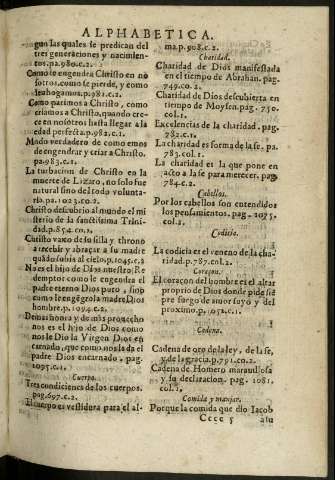 ALPHABETICA.
gun las quales se predican del
tres generaciones y nacimien-
tos.pa.980.c.2.
Como se engendra Christo en no
sotros, como se pierde, y como
le ahogamos.p.981.c.2.
Como parimos a Christo, como
criamos a Christo, quando cre-
ce en nosotros hasta llegar a la
edad perfecta.p.982.c.1.
Modo verdadero de como emos
de engendrar y criar a Christo.
pa.983.c.1.
La turbacion de Christo en la
muerte de Lazaro, no solo fue
natural sino del todo volunta-
ria.pa.1023.c.2.
Christo descubrio al mundo el mi
sterio de la sanctissima Trini-
dad.p.854.cn.1.
Christo baxo de su silla y throno
a recebir y abraçar a su madre
quãdo subia al cielo.p.1045.c.2
No es el hijo de Dios nuestro Re
demptor como le engendra el
padre eterno Dios puro, sino
como le engẽgrola madre Dios
hombre.p.1094.c.2.
De mas honra y de mas prouecho
nos es el hijo de Dios como
nos le Dio la Virgen Dios en
carnado, que como nos le da el
padre Dios encarnado, pag.
1095.c.1.
Cuerpo.
Tres condiciones de los cuerpos.
pag.697.c.2.
El cuerpo es vestidura para el al-
ma.p.908.c.2.
Charidad.
Charidad de Dios manifestada
en el tiempo de Abrahan. pag.
749.co.2.
Charidad de Dios descubierta en
tiempo de Moysen. pag. 750.
col.1.
Excelencias de la charidad. pag.
782.c.1.
La charidad es forma de la fe. pa.
783.col.1.
La charidad es la que pone en
acto a la fe para merecer. pag.
784.c.2.
Cabellos.
Por los cabellos son entendidos
los pensamientos. pag. 1035.
col.1.
Codicia.
La codicia es el veneno de la cha-
ridad.p.787.col.2.
Coraçon.
El coraçon del hombre es el altar
proprio de Dios donde pide siẽ
pre fuego de amor suyo y del
proximo.p.1051.c.1.
Cadena.
Cadena de oro de la ley, de la fe,
y de la gracia.p.791.co.2.
Cadena de Homero marauillosa
y su declaracion. pag. 1081.
col.1.
Comida y manjar.
Porque la comida que dio Jacob
Cccc 5
a su